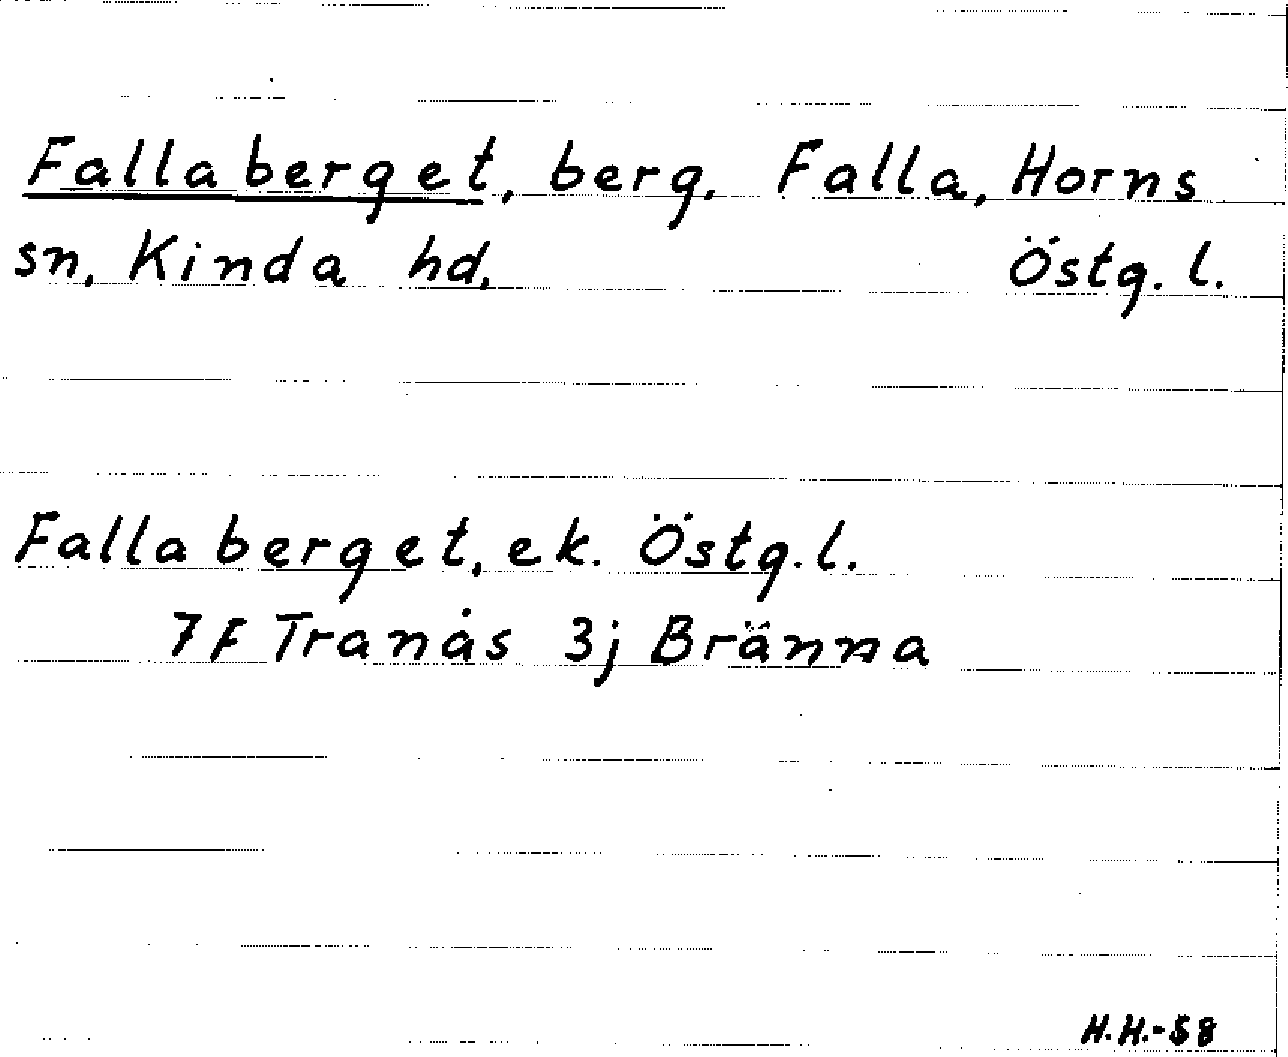 Fallaberget, berg, Falla, Horns
sn, Kinda hd, Östg. l.
Fallaberget, ek. Östg. l.
7F Tranås 3j Bränna
H.H.-58